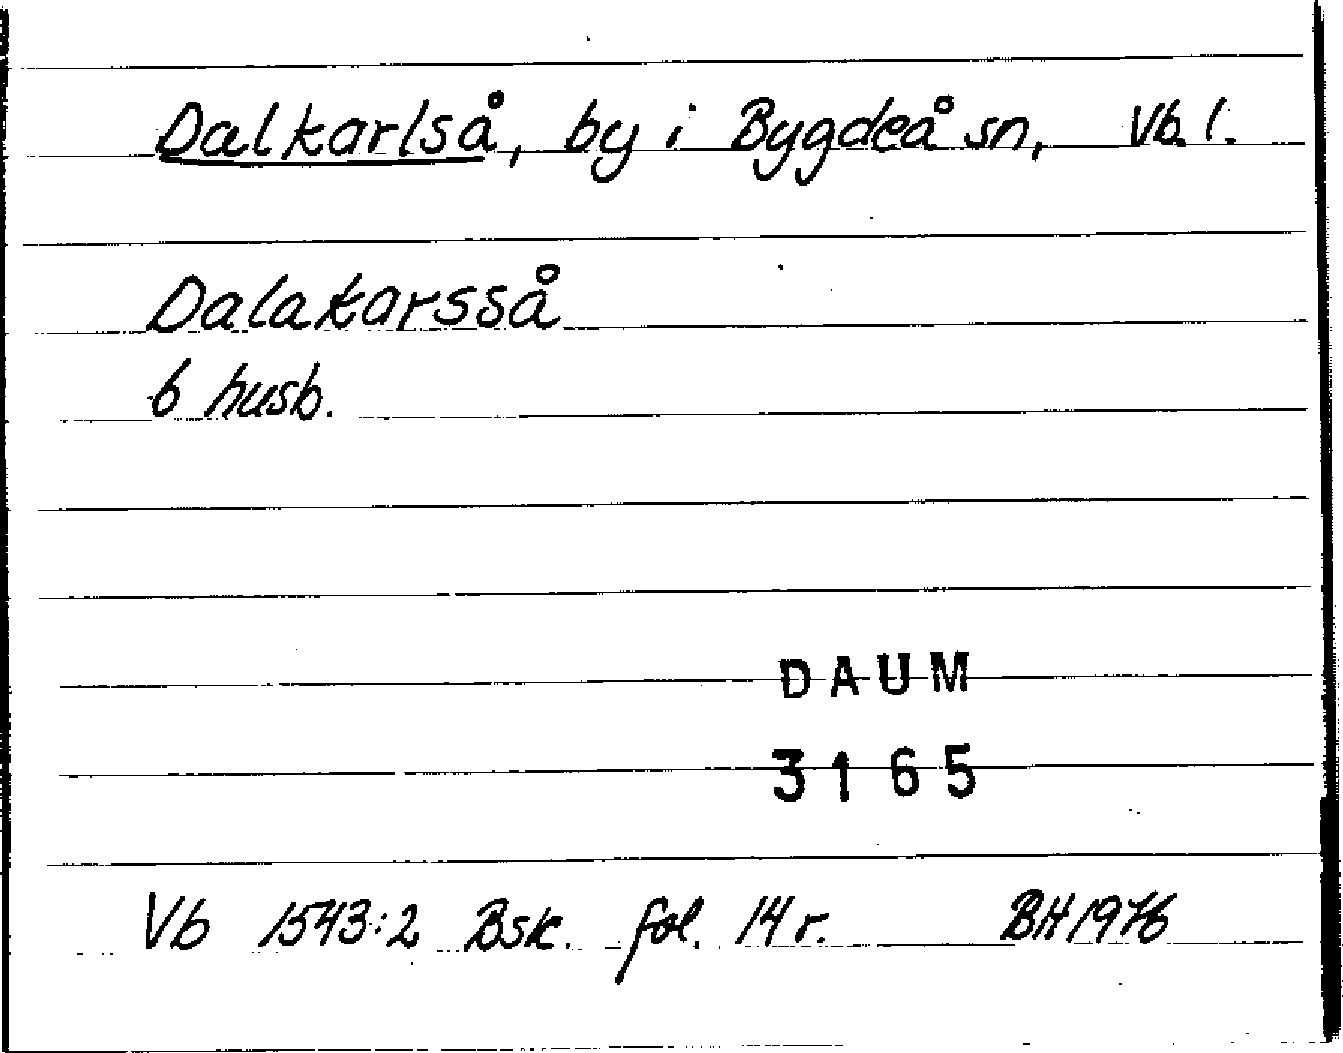 Dalkarlså, by i Bygdeå sn, Vb. l.
Dalakarsså
6 husb.
DAUM
3165
Vb 1543:2 Bsk. fol. 14 r. BH 1976